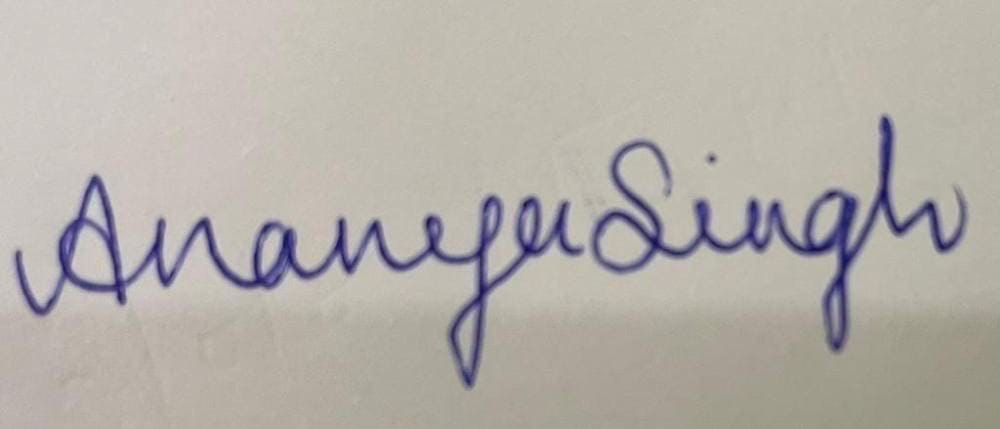 Ananya Singh